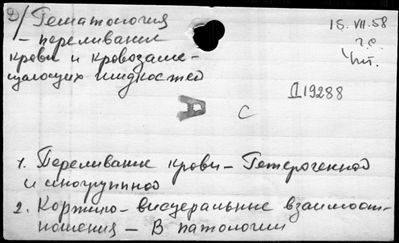 Д) Гематология
15.VII.58
– переливание
крови и кровозаме-
щающих жидкостей
Чит.
Д19288
А
С
1. Переливание крови – Гетерогенной
и иногруппной
2. Кортико-висцеральные взаимоот-
ношения – в патологии